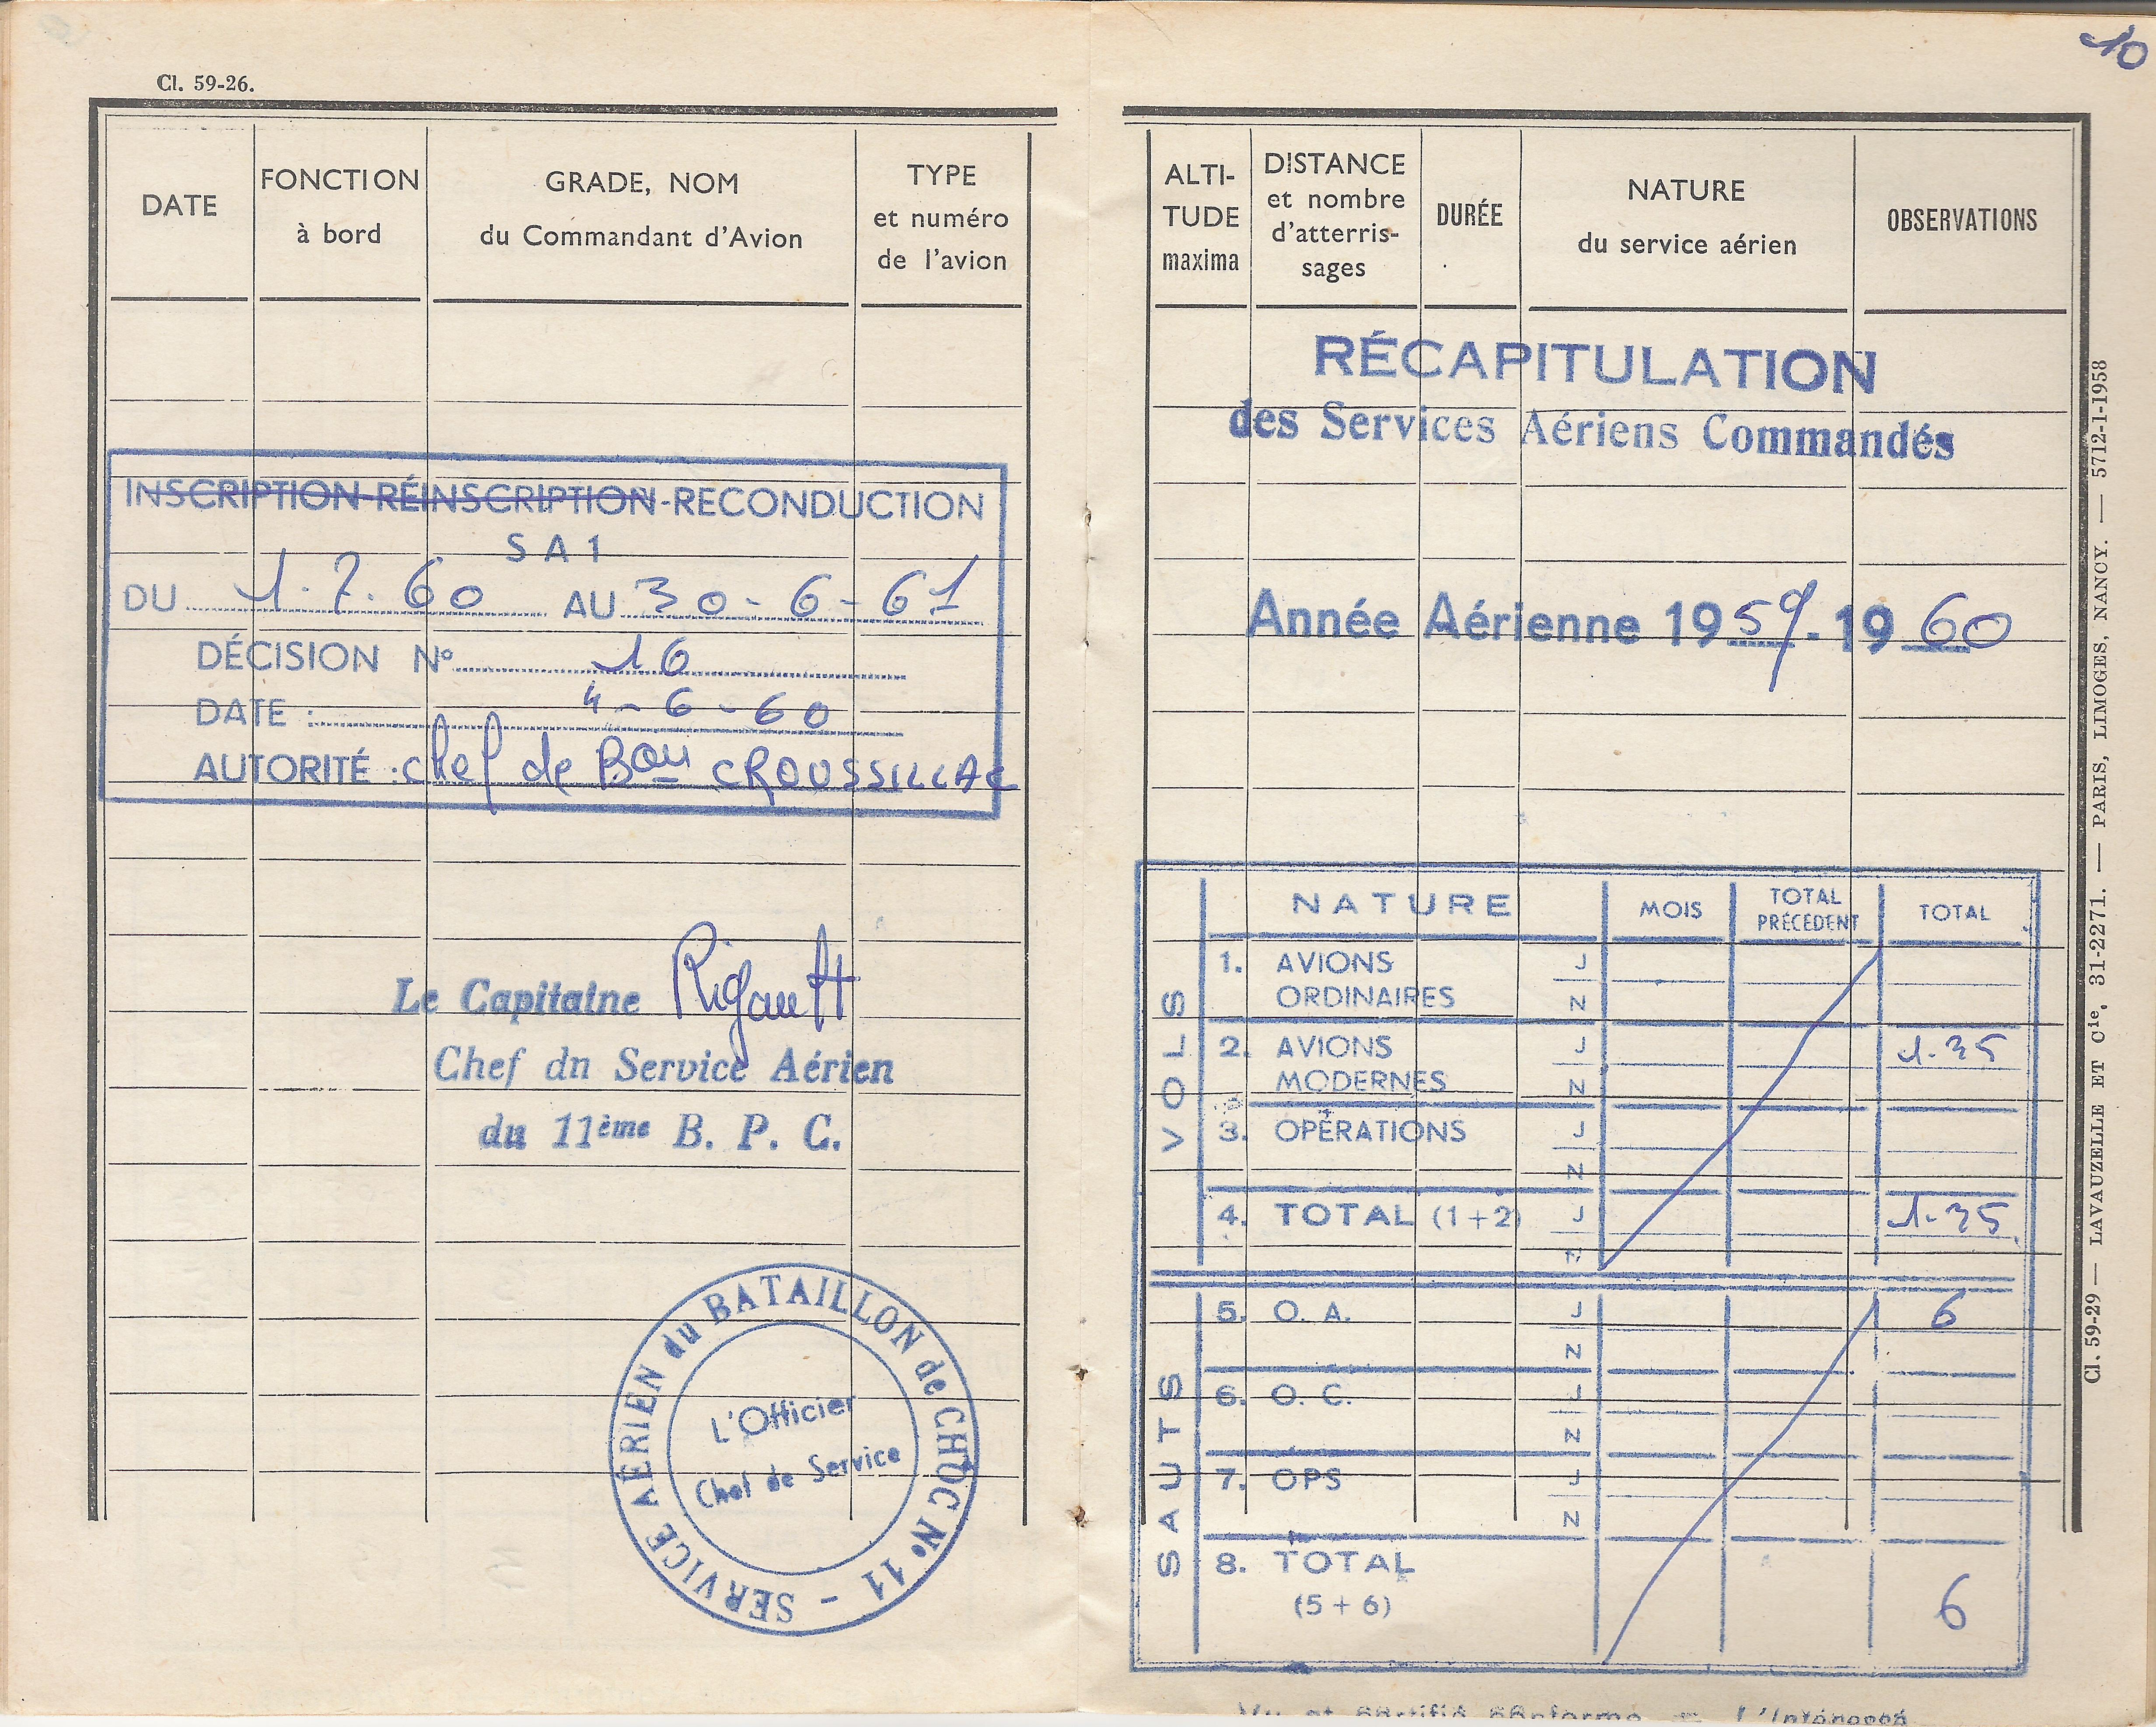 Cl. 59-26.
DATE
FONCTION
à bord
GRADE, NOM
du Commandant d'Avion
TYPE
et numéro
de l'avion
INSCRIPTION-RÉINSCRIPTION-RECONDUCTION
SA1
DU 1.7.60 AU 30-6-61
DÉCISION N° 16
DATE : 4-6-60
AUTORITÉ : chef de Bon CROUSSILLAC
Le Capitaine Rigault
Chef dn Service Aérien
du 11ème B. P. C.
SERVICE AÉRIEN du BATAILLON de CHOC N° 11 -
L'Officier
Chef de Service
10
ALTI-
TUDE
maxima
DISTANCE
et nombre
d'atterris-
sages
DURÉE
NATURE
du service aérien
OBSERVATIONS
RÉCAPITULATION
des Services Aériens Commandés
Année Aérienne 1959-1960
NATURE MOIS TOTAL PRÉCÉDENT TOTAL
VOLS
1. AVIONS ORDINAIRES J
N
2. AVIONS MODERNES J 1.35
N
3. OPÉRATIONS J
N
4. TOTAL (1+2) J 1.35
N
SAUTS
5. O. A. J 6
N
6. O. C. J
N
7. OPS J
N
8. TOTAL
(5+6) 6
Vu et certifié conforme - L'Intéressé
Cl. 59-29 — LAVAUZELLE ET Cie, 31-2271. — PARIS, LIMOGES, NANCY. — 5712-1-1958